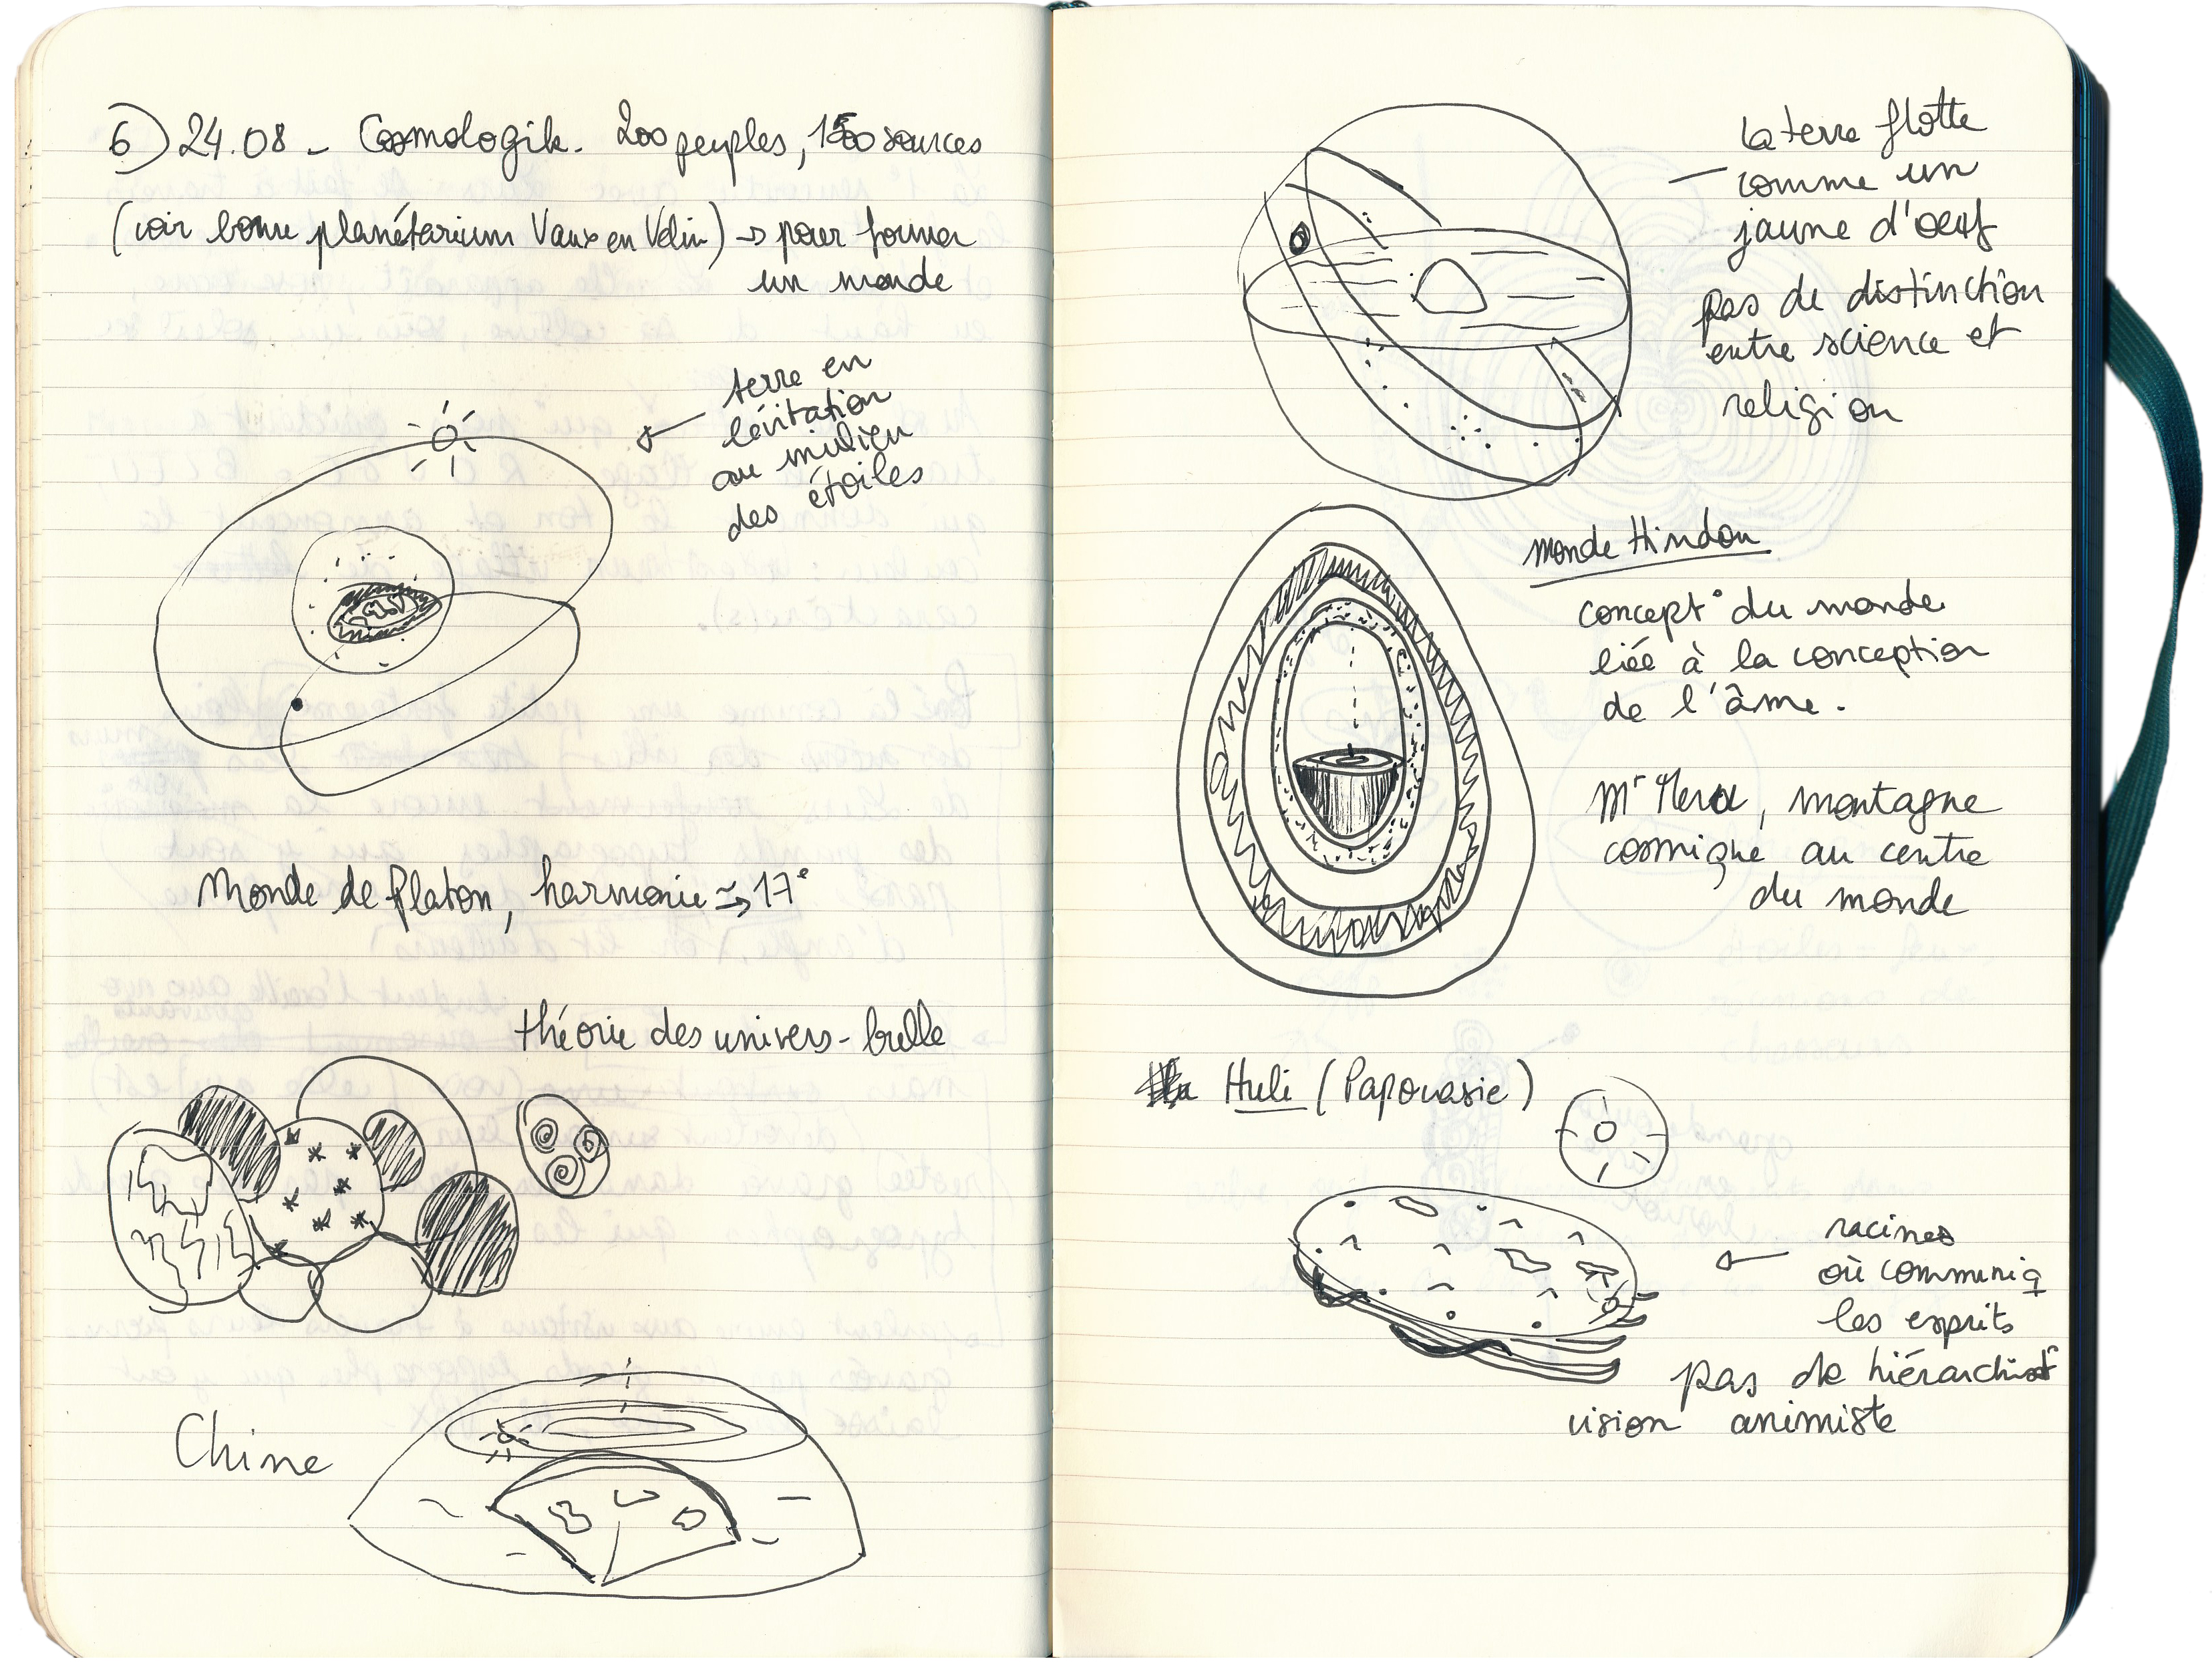 6) 24.08 - Cosmologik. 200 peuples, 1500 sources
(voir borne planétarium Vaux en Velin) → pour former
un monde
terre en
lévitation
au milieu
des étoiles
Monde de Platon, harmonie → 17e
théorie des univers-bulle
Chine
la terre flotte
comme un
jaune d'oeuf
pas de distinction
entre science et
religion
Monde Hindou
concept° du monde
liée à la conception
de l'âme.
Mt Meru, montagne
cosmique au centre
du monde
Huli (Papouasie)
racines
où communiq
les esprits
pas de hiérarchisat°
vision animiste